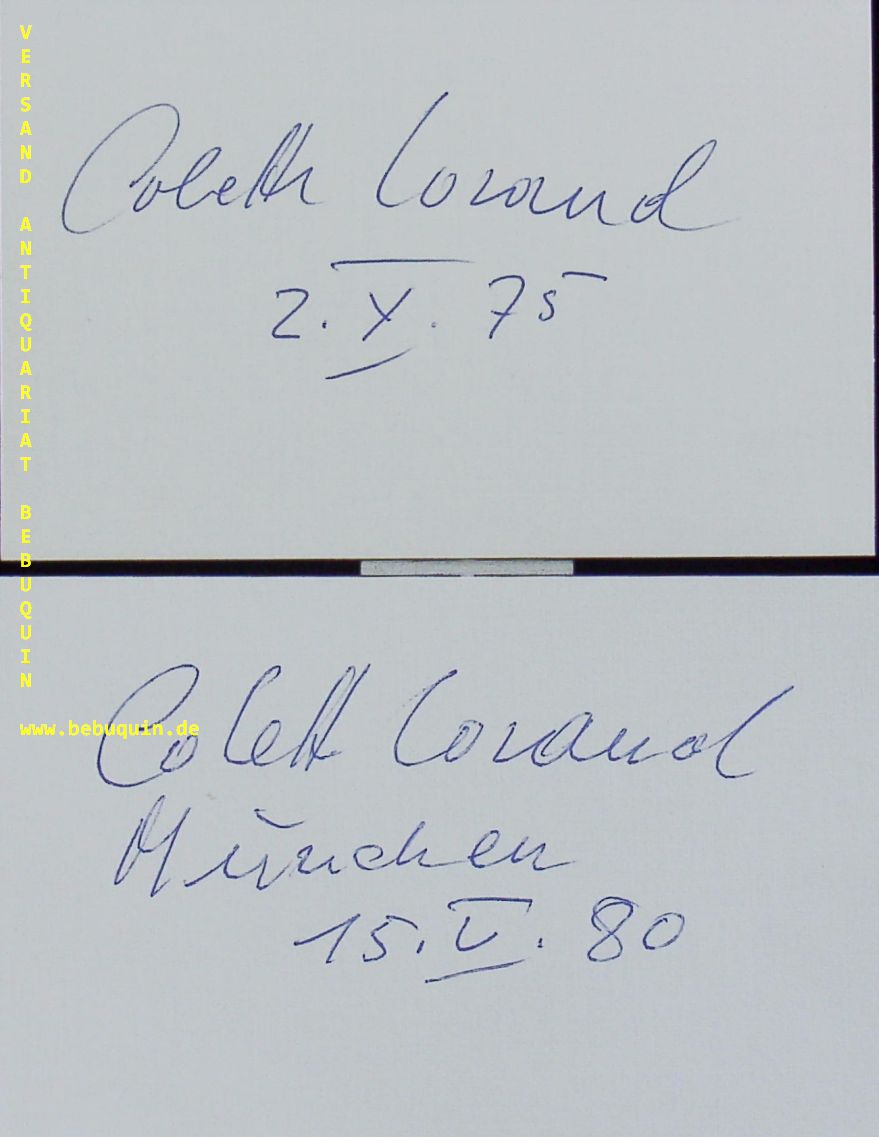 VERSAND ANTIQUARIAT BEBUQUIN
Colette Lorand
2. X. 75
www.bebuquin.de
Colette Lorand
München
15. V. 80